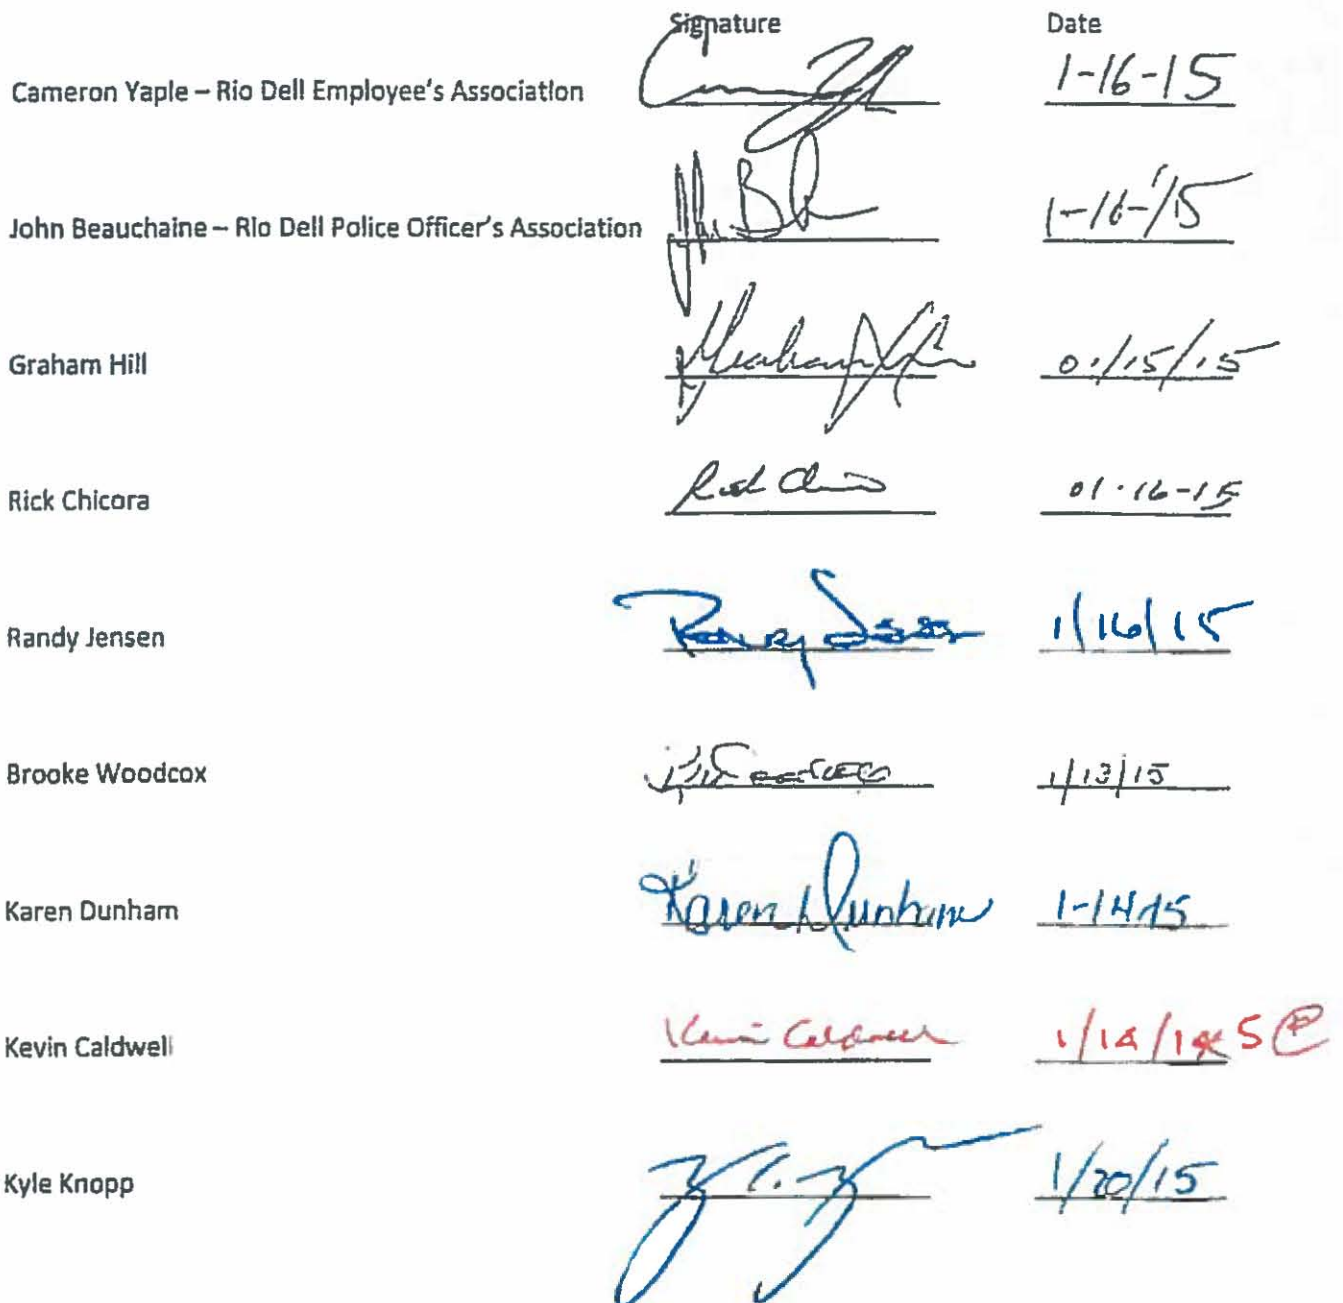 Signature Date
Cameron Yaple – Rio Dell Employee's Association 1-16-15
John Beauchaine – Rio Dell Police Officer's Association 1-16-15
Graham Hill Graham Hill 01/15/15
Rick Chicora 01-16-15
Randy Jensen Randy Jensen 1/16/15
Brooke Woodcox 1/13/15
Karen Dunham Karen Dunham 1-14-15
Kevin Caldwell Kevin Caldwell 1/14/15
Kyle Knopp 1/20/15